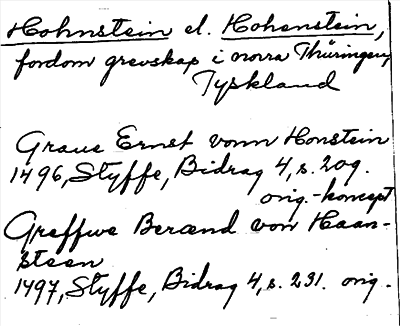 Hohnstein el. Hohenstein,
fordom grevskap i norra Thüringen,
Tyskland
Graue Ernst vonn Honstein
1496, Styffe, Bidrag 4, s. 209.
orig.-koncept
Greffwe Berænd von Haan-
steen
1497, Styffe, Bidrag 4, s. 231. orig.